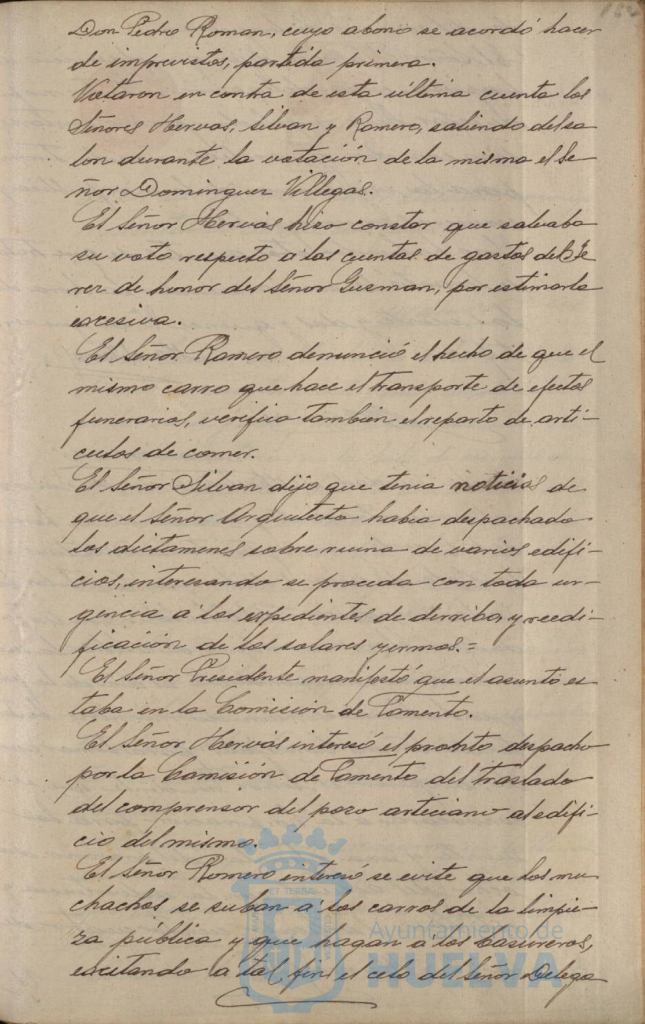 162
Don Pedro Roman, cuyo abono se acordó hacer
de imprevistos, partida primera.
Votaron en contra de esta última cuenta los
Señores Hervas, Silvan y Romero, saliendo del sa
lon durante la votación de la misma el Se-
ñor Dominguez Villegas.
El Señor Hervás hizo constar que salvaba
su voto respecto a las cuentas de gastos del Je
rez de honor del Señor Guzman, por estimarla
excesiva.
El Señor Romero denunció el hecho de que el
mismo carro que hace el transporte de efectos
funerarios, verifica también el reparto de artí-
culos de comer.
El Señor Silvan dijo que tenia noticias de
que el Señor Arquitecto habia despachado
los dictamenes sobre ruina de varios edifi-
cios, interesando se proceda con toda ur-
gencia a los expedientes de derribo, y reedi-
ficación de los solares yermos.=
El Señor Presidente manifestó que el asunto es
taba en la Comisión de Fomento.
El Señor Hervás interesó el pronto despacho
por la Comisión de Fomento del traslado
del compresor del pozo articiano al edifi-
cio del mismo.
El Señor Romero interesó se evite que los mu
chachos se suban a los carros de la limpie-
za pública y que hagan a los basureros,
excitando a tal fin el celo del Señor Delega
Ayuntamiento de
HUELVA